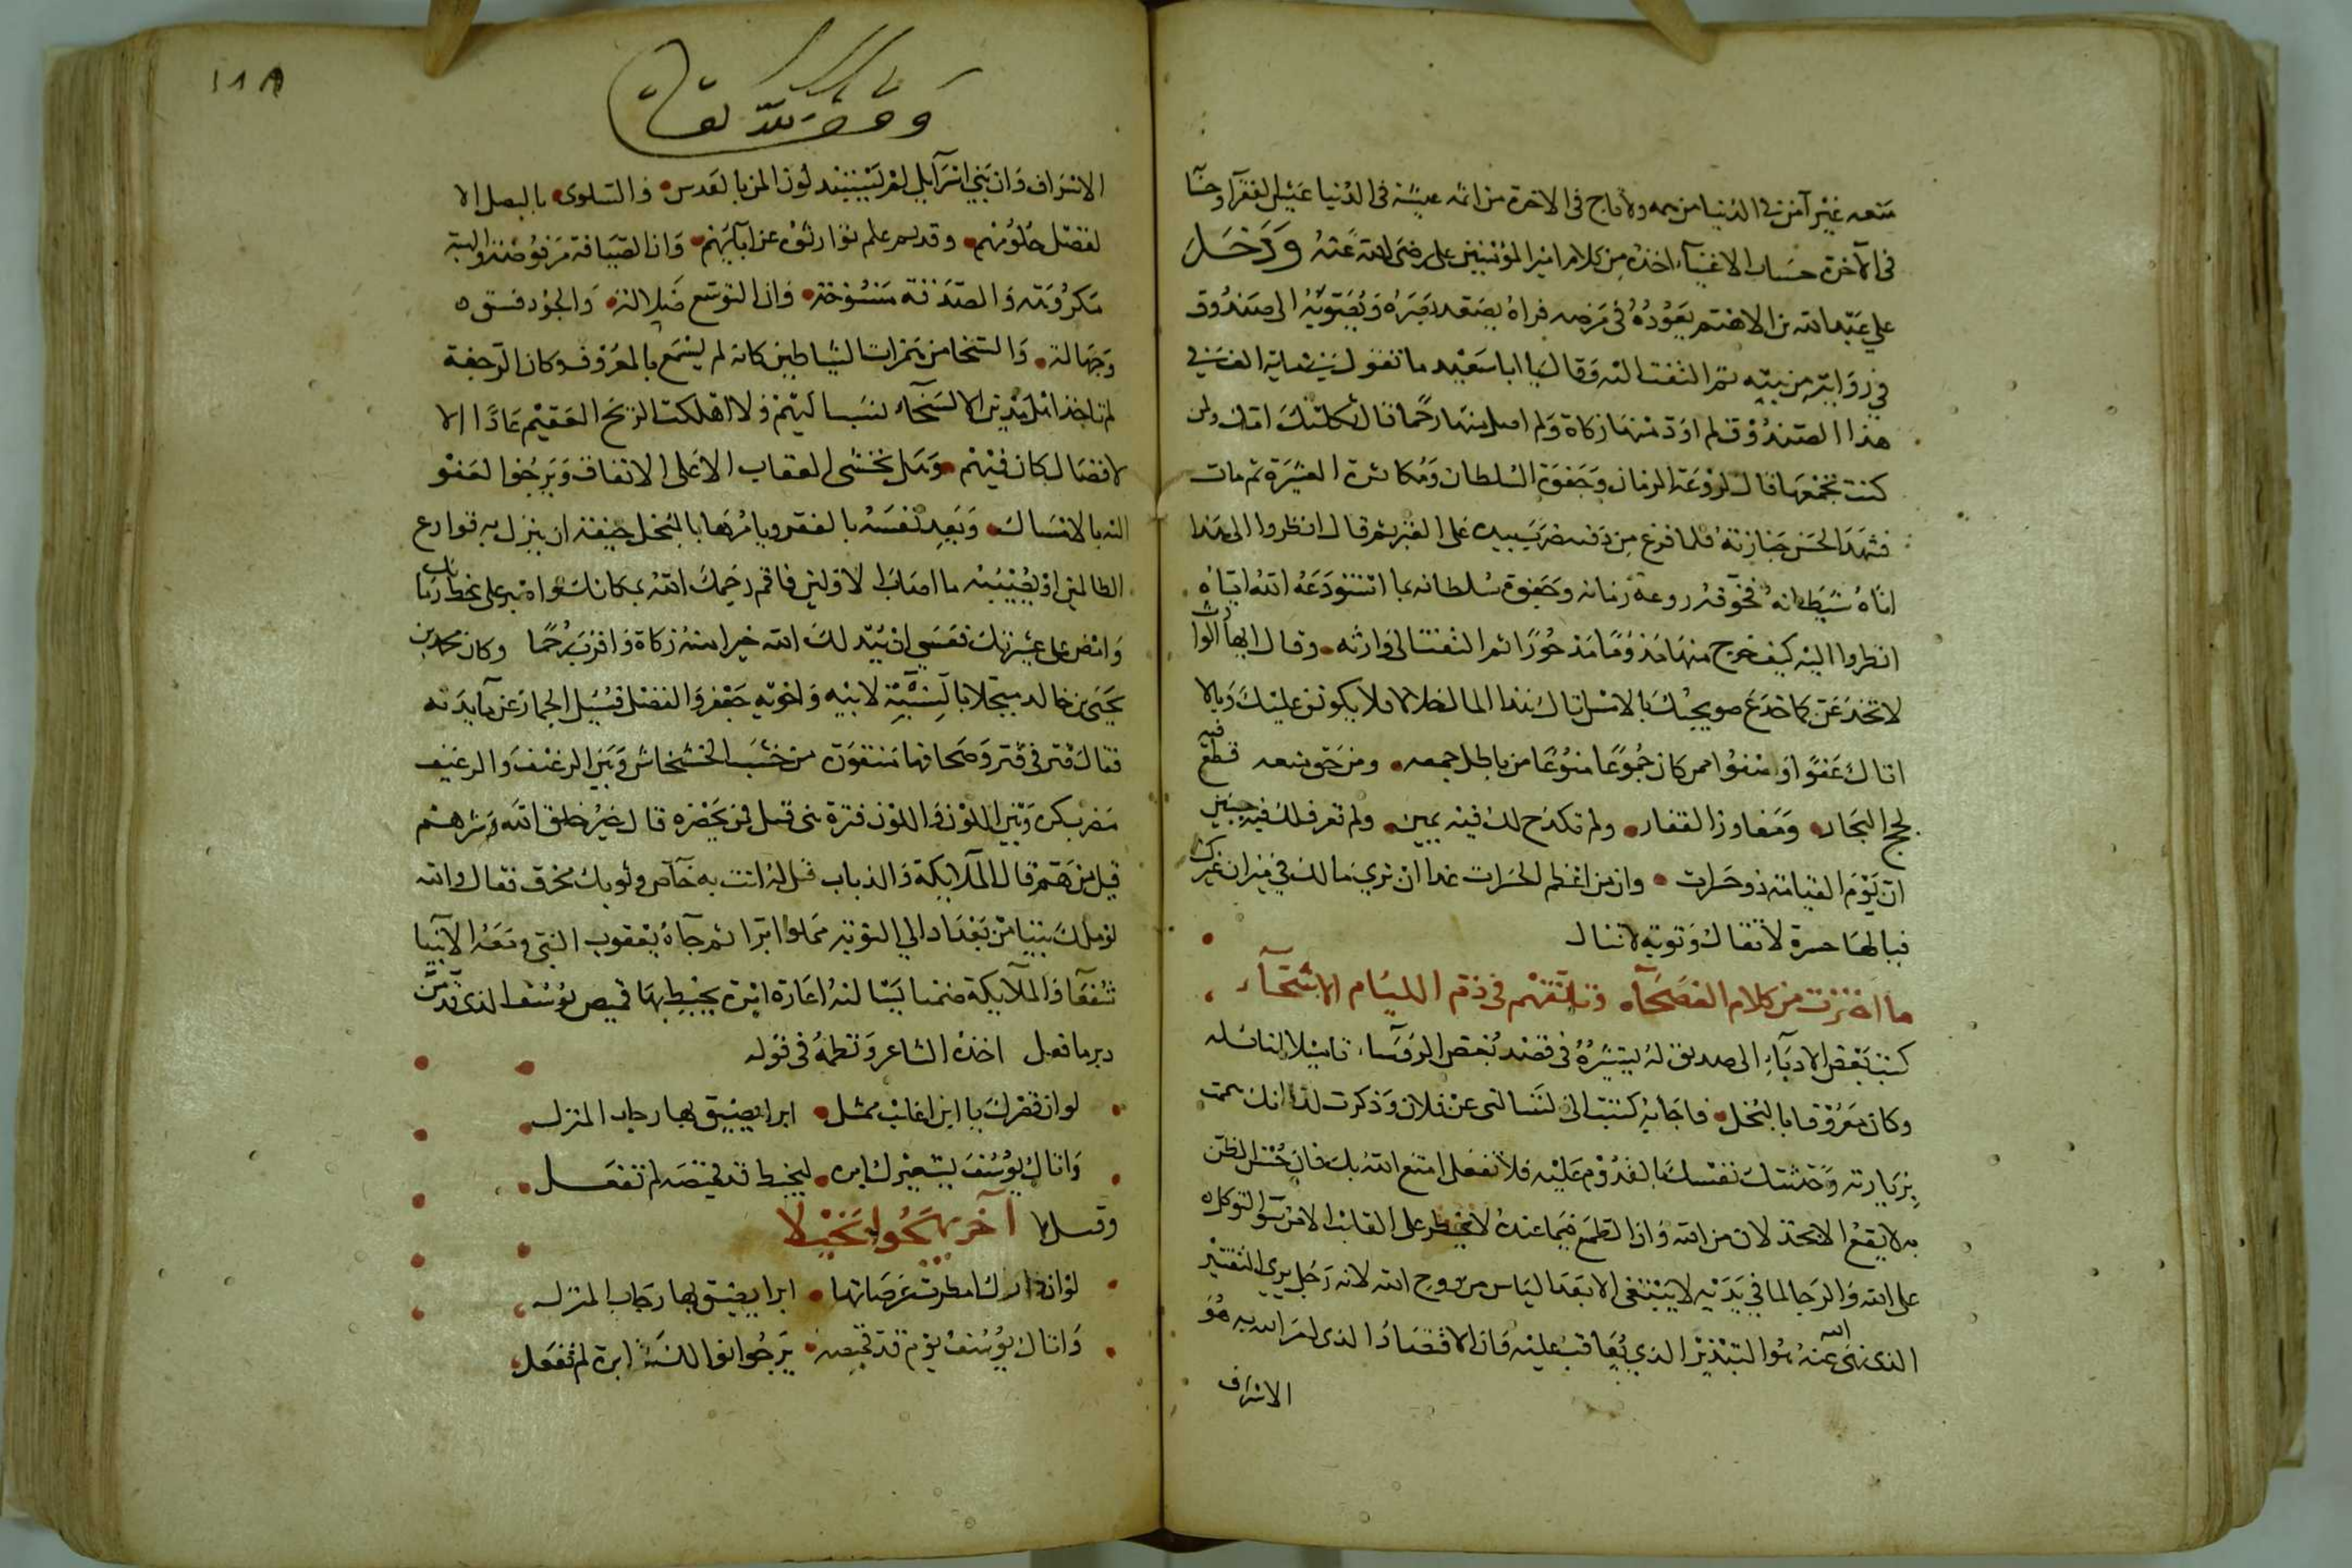 متعه غير آمن في الدنيا من همه ولا ناج في الآخرة من اثمه عيشه في الدنيا عيش الفقرآ وحسابه
في الآخرة حساب الاغنيآء اخذه من كلام امير المؤمنين على رضى الله عنه ودخل
على عبد الله بن الاهتم يعوده في مرضه فراه يصعد بصره ويصوبه الى صندوق
في زواية من بيته ثم التفت اليه وقال يا ابا سعيد ما تقول في مايه الف في
هذا الصندوق لم اود منها زكاة ولم اصل منها رحما قال ثكلتك امك ولمن
كنت تجمعها قال لروعة الزمان وجفوة السلطان ومكاثرة العشيرة ثم مات
فشهد الحسن جنازته فلما فرغ من دفنه ضرب بيده على القبر ثم قال انظروا الى هذا
اتاه شيطانه فخوفه روعة زمانه وجفوة سلطانه بما استودعه الله اياه
انظروا اليه كيف خرج منها مذموما مدحورا ثم التفت الى وارثه وقال ايها الوارث
لا تخدعن كما خدع صويحبك بالامس اتاك هذا المال حلالا فلا يكونن عليك وبالا
اتاك عفوا صفوا ممن كان جموعا منوعا من باطل جمعه ومن حق منعه قطع فيه
لجج البحار ومفاوز القفار ولم تكدح لك فيه يمين ولم تعرق لك فيه جبين
ان يوم القيامة ذو حسرات وان من اعظم الحسرات غدا ان ترى مالك في ميزان غيرك
فيالها حسرة لا تقال وتوبة لا تنال
ما اخترت من كلام الفصحآء في ذم اللئام الاشحآء
كتب بعض الادبآء الى صديق له يستشيره في قصد بعض الروسآء تاميلا لنائله
وكان معروفا بالبخل فاجابه كتبت الى تسالنى عن فلان وذكرت لنا انك هممت
بزيارته وحدثتك نفسك بالقدوم عليه فلا تفعل امتع الله بك فان حسن الظن
به لا يقع الا بخذلان من الله وان الطمع فيما عنده لا يخطر على القلب الا من سوء التوكل
على الله والرجا لما في يديه لا ينبغى الا بعد الياس من روح الله لانه رجل يرى التقتير
الذى نهى الله عنه هو التبذير الذي يعاقب عليه وان الاقتصاد الذى امر الله به هو
الاسراف
١١٨
الاسراف وان بني اسرآيل لم يستبدلون المن بالعدس والسلوى بالبصل الا
لفضل حلومهم وقديم علم توارثوه عن آبآيهم وان الضيافة مرفوضة والهبة
مكروهة والصدقة منسوخة وان التوسع ضلالة والجود فسوق
وجهالة والسخا من همزات الشياطين كانه لم يسمع بالمعروف وكان الرجفة
لم تاخذ اهل مدين الا لسخآء نسب اليهم ولا اهلكت الريح العقيم عادا الا
لافضال كان فيهم وهل يخشى العقاب الا على الانفاق ويرجوا العفو
الله بالامساك ويعد نفسه بالفقر ويامرها بالبخل خيفة ان ينزل به قوارع
الظالمين او يصيبه ما اصاب الاولين فاقم رحمك الله بمكانك واصبر على
وامض على عسرتك فعسى ان يبدلك الله خيرا منه زكاة واقرب رحما وكان محمد بن
يحيى بن خالد مبخلا بالنسبة لابيه واخويه جعفر والفضل فسئل الجماز عن مآيدته
فقال فتر في فتر وصحافها منقوة من خشب الخشخاش وبين الرغيف والرغيف
مضرب كرة وبين اللون واللون فترة نبى قيل فمن يحضره قال خير خلق الله وشرهم
قيل من هم قال الملآيكة والذباب قيل له انت به خآص وثوبك مخرق فقال والله
لو ملك بيتا من بغداد الي النوبة مملوا ابرا ثم جآه يعقوب النبى ومعه الانبيا
شفعآ والملآيكة ضمنا يسالنه اعارة ابرة يخيط بها قميص يوسف الذى قد من
دبر ما فعل اخذه الشاعر ونظمه في قوله
لو ان قصرك يا ابن اغلب ممتل ابرا يضيق بها رحاب المنزل
واتاك يوسف يستعيرك ابرة ليخيط قد قميصه لم تفعل
وقــال آخر يهجوا بخيلا
لو ان دارك امطرت عرصاتها ابرا يضيق بها رحاب المنزل
واتاك يوسف يوم قد قميصه يرجو ابرة لم تفعل